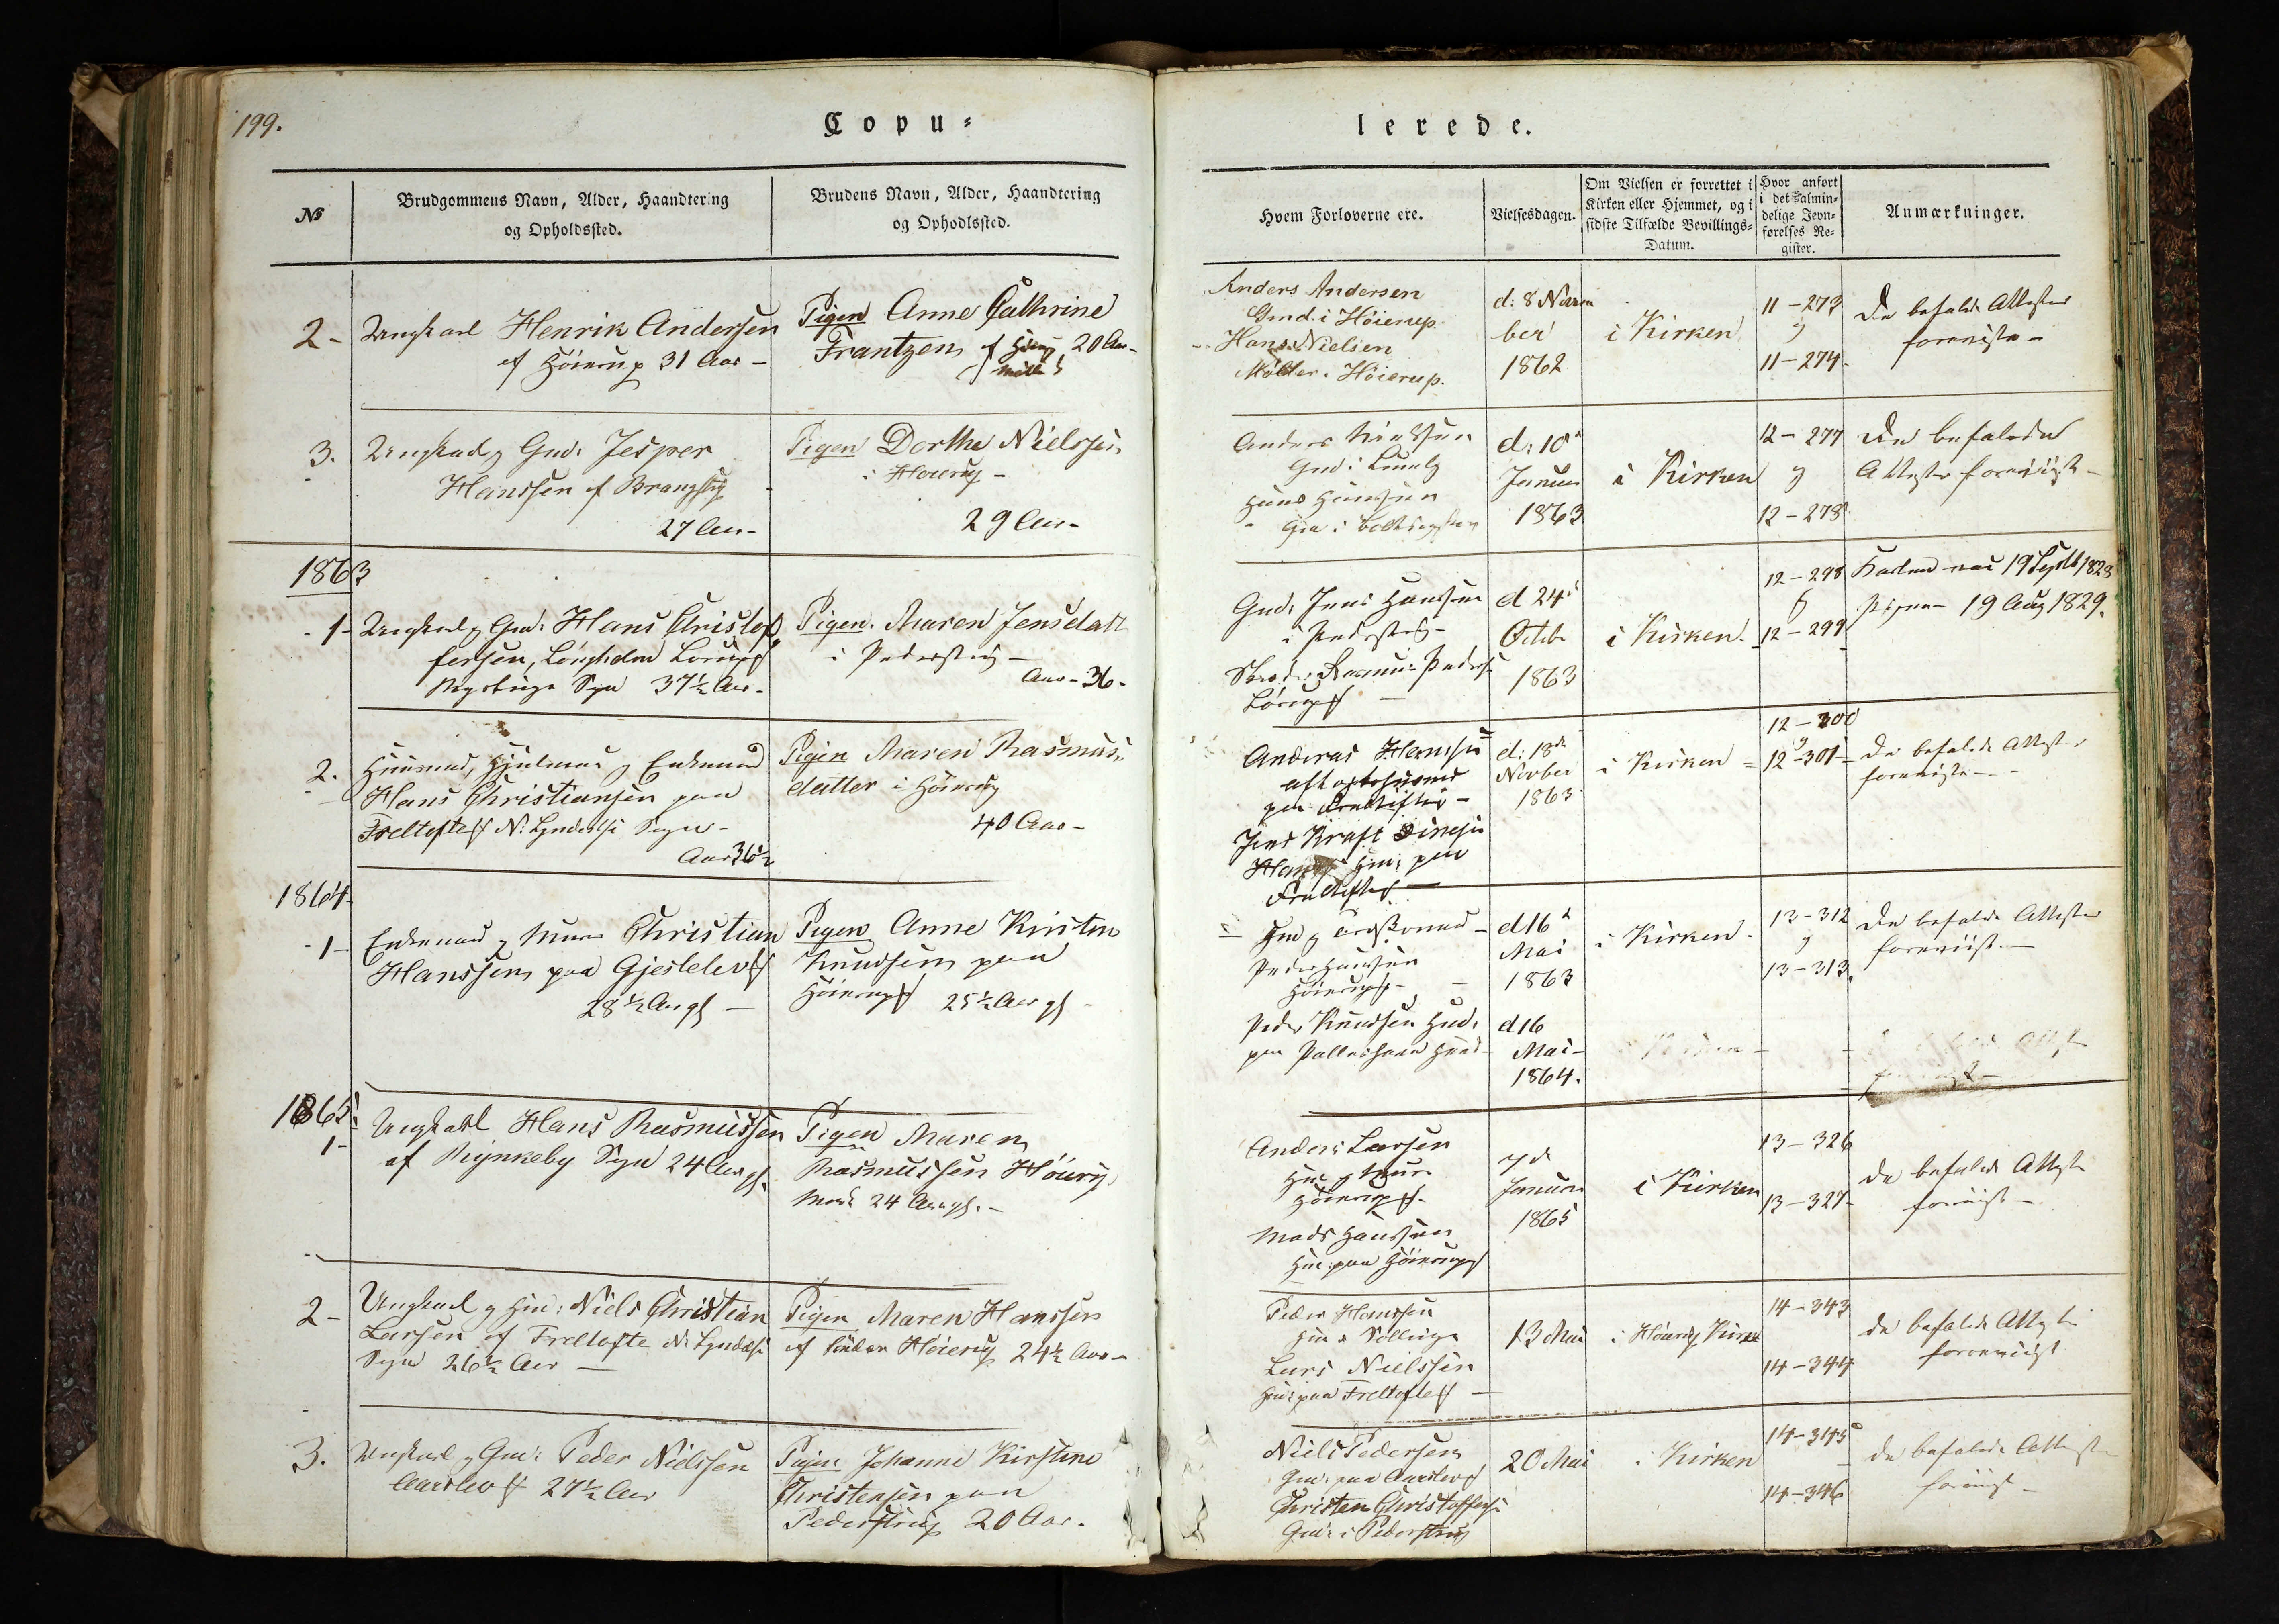 199.
Copu=
lerede.
№
Brudgommens Navn, Alder, Haandtering
og Opholdssted.
Brudens Navn, Alder, Haandtering
og Ophodlssted.
Hvem Forloverne ere.
Vielsesdagen.
Om Vielsen er forrettet i
Kirken eller Hjemmet, og i
sidste Tilfælde Bevillings=
Datum.
Hvor anført
i det almin=
delige Jevn=
førelses Re=
gister.
Anmærkninger.
2-
Ungkarl Henrik Andersen
af Höierup 31 Aar -
Pigen Anne Cathrine
Frantzen af 20 Aar
Anders Andersen
Gmd. i Höierup.
Hans Nielsen
Möller i Höierup.
d: 8 Novem
ber
1862
i Kirken
11-273
og
11-274
De befalede Attester
foreviste -
3.
Ungkarl og Gmd: Jesper
Hanssen af
27 Aar-
Pigen Dorthe Nielssen
i Höierup -
29 Aar-
Anders Nielssen
Gmd i
Hans Hanssen
Gm i
d: 10de
Januar
1863
i Kirken
12-277
og
12-278
De befalede
Attester foreviist -
1863
1- Ungkarl og Gmd: Hans Christof
fersen,
Sogn 37½ Aar -
Pigen Maren Jensdatt
i Pederstrup -
Aar - 36 -
Gmd: Jens Hanssen
i Pederstrup -
Rasmus Peders
d 24de
Octobr
1863
i Kirken -
12-298
og
12-299
Karlen var 19 Septb 1828
Pigen - 19 Aug 1829.
2.
Huusmand, Hjulmand og Enkemand
Hans Christiansen paa
Freltofte N: Lyndelse Sogn -
Aar 36½
Pigen Maren Rasmus-
datter i Höierup
40 Aar -
Anderas Hansen
paa
Jens Kraft
paa
d: 18de
Novber
1863
i Kirken -
12-300
og
12-301-
De befalede Attester
foreviste -
1864
1-
Enkemand og Christian
Hanssen paa Gjestelev
28½ Aar gl -
Pigen Anne Kirstin
Knudssen paa
Höierup 25½ Aar gl
Peder Hanssen
Höierup -
Peder Knudssen Huusmd:
paa
d 16de
Mai
1863
d 16
Mai-
1864.
i Kirken -
13-312
og
13-313.
De befalede Attester
foreviist -
1865
1-
Ungkarl Hans Rasmussen
af Rynkeby Sogn 24 Aar gl.
Pigen Maren
Rasmussen Höierup
Mark 24 Aar gl. -
Anders Larsen
Höierup
Mads Hanssen
Huu: paa Höierup
7de
Januar
1865
i Kirken
13-326
13-327-
De befalede Attester
foreviist -
2-
Ungkarl og Huu: Niels Christian
Larsen af Freltofte N: Lyndelse
Sogn 26½ Aar -
Pigen Maren Hanssen
af Sönder Höierup 24½ Aar -
Peder Hanssen
Huu i Sollinge
Lars Nielssen
Huu: paa Freltofte -
13 Mai
i Höierup Kirke
14-343
14-344
De befalede Attester
foreviist
3.
Ungkarl og Gmd: Peder Nielssen
Aarslev 27½ Aar
Pigen Johanne Kirstine
Christensen paa
Pederstrup 20 Aar.
Niels Pedersen
Gmd: paa Aarslev
Christen Christoffers:
Gmd: i Pederstrup
20 Mai
i Kirken
14-345
14-346
De befalede Attester
foreviist -